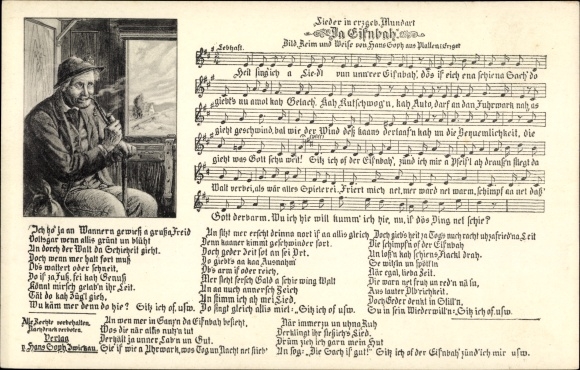 Lieder in erzgeb. Mundart
Da Eisnbah'.
Bild, Reim und Weise von Hans Soph aus Platten i. Erzgeb.
Lebhaft.
Heit sing' ich a Lied'l vun unn'rer Eisnbah', dos is eich ena schiena Sach' do
giebt's nu amol kah Gelach'. Kah Kutschwog'n, kah Auto, darf an dan Fuhrwark nah, es
gieht geschwind, bal wie der Wind, deß kaans derlaaf'n kah un die Bequemlichkeit, die
gieht was Gott schu weit! Sitz ich of der Eis'nbah', zünd ich mir a Pfeif'l ah draußn fliegt da
Wald verbei, als wär alles Spielerei. Friert mich net, mer ward net warm, schimpf aa net daß
Gott derbarm. Wu ich hie will kumm' ich hie, nu, is dös Ding net schie?
Ich ho' ja an Wannern gewieß a gruße Freid
Voltsgar wenn allis grünt un blüht
Un dorch der Wald da Gescheitl gieht.
Doch wenn mer halt fort muß
Ob's waltert oder schneit.
Do is ja zu Fuß, sei kah Genuß
Könnt mirsch gelab'n ihr Leit.
Tät do kah Zügl gieh,
Wu käm mer denn do hie? Sitz ich of. usw.
Un sitzt mer erscht drinna nort is an allis gleich
Denn kaaner kimmt geschwinder fort.
Doch geder drit sot an sei Ort.
Do giebt's aa kaa Ausnahm'
Ob's arm is oder reich,
Mer sieht fersch Gald a schie wing Walt
Un aa nuch annersch Zeich
Un stimm ich ah mei Lied,
Do singt gleich allis miet: Sitz ich of. usw.
Doch giebt's heit zu Tog's auch racht unzafried'na Leit
Die schimpf'n of der Eisnbah
Un loss'n kah schien's Flackl drah.
Se witz'ln un spött'ln
När egal, lieba Leit.
Die warn net fruh un red'n nä su,
Aus lauter Ölbrichkeit.
Doch Geder denkt in Still'n,
Su in sen Wiederwill'n: Sitz ich of. usw.
Un wen mer in Ganz'n da Eisnbah besieht,
Wos die när alls nuh'n tut
Derhält ja unner Land'n un Gut.
Sie is wie a Uhrwark, wos Tog un Nacht net stieht
När immerzu un uhna Ruh
Verklingt ihr fleißich's Lied.
Drüm zieh ich garn mein Hut
Un sog: „Die Sach is gut!" Sitz ich of der Eisnbah' zünd' ich mir usw.
Alle Rechte vorbehalten.
Nachdruck verboten.
Verlag
v. Hans Soph, Zwickau.